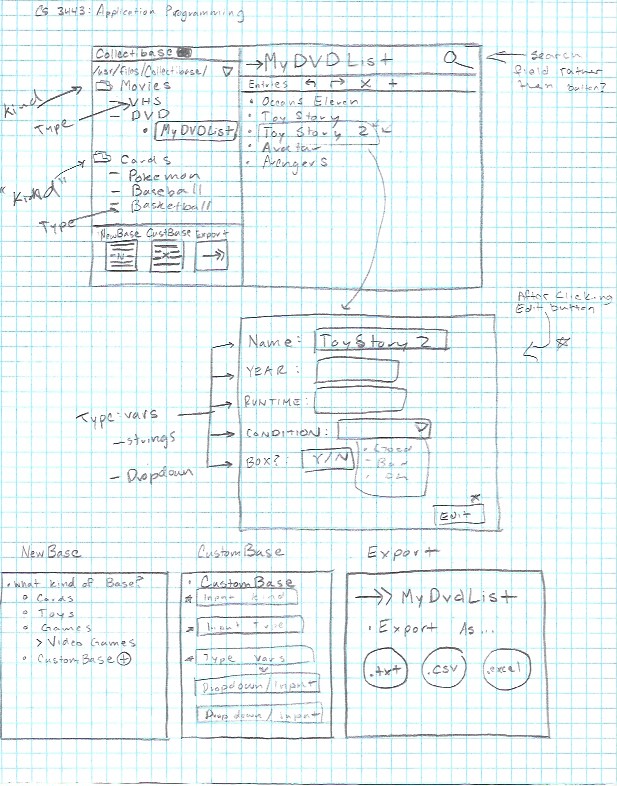 CS 3443: Application Programming
Collectibase
/usr/files/Collectibase/
Movies
- VHS
- DVD
• MyDVDList
Cards
- Pokemon
- Baseball
- Basketball
NewBase CustBase Export
-N-
-X-
Kind
Type
"Kind"
Type
→ MyDVDList
Entries X +
• Oceans Eleven
• Toy Story
• Toy Story 2
• Avatar
• Avengers
Search
field rather
than button?
After Clicking
Edit button
Name: Toy Story 2
YEAR:
RUNTIME:
CONDITION:
BOX?: Y/N
• Good
- Bad
• Ok
EDIT
Type-vars
- strings
- Dropdown
NewBase
• What kind of Base?
Cards
Toys
Games
> Video Games
CustomBase +
CustomBase
• CustomBase
* Input Kind
* Input Type
* Type vars
Dropdown/Input
Dropdown/input
Export
→ MyDvdList
• Export As...
.txt
.csv
.excel